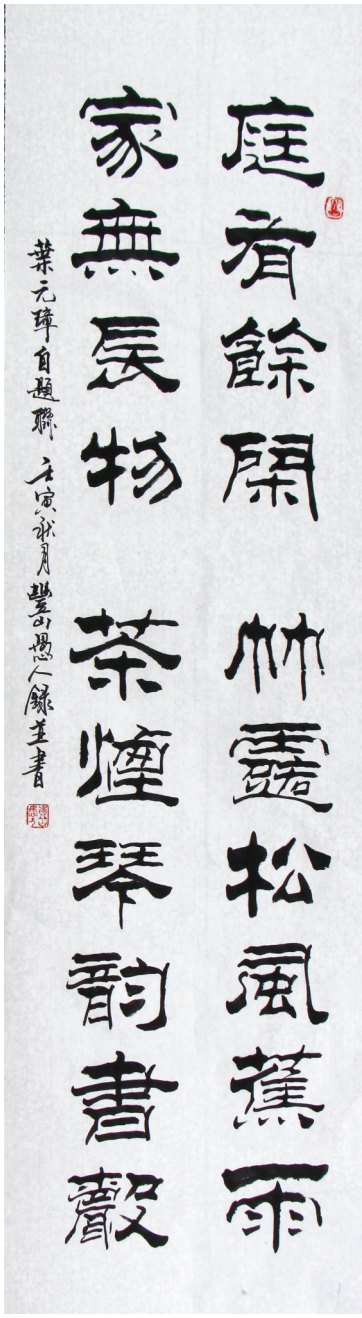 庭有餘閑 竹露松風蕉雨
家無長物 茶煙琴韵書聲
葉元璋自題聯 壬寅秋月豐山愚人錄並書